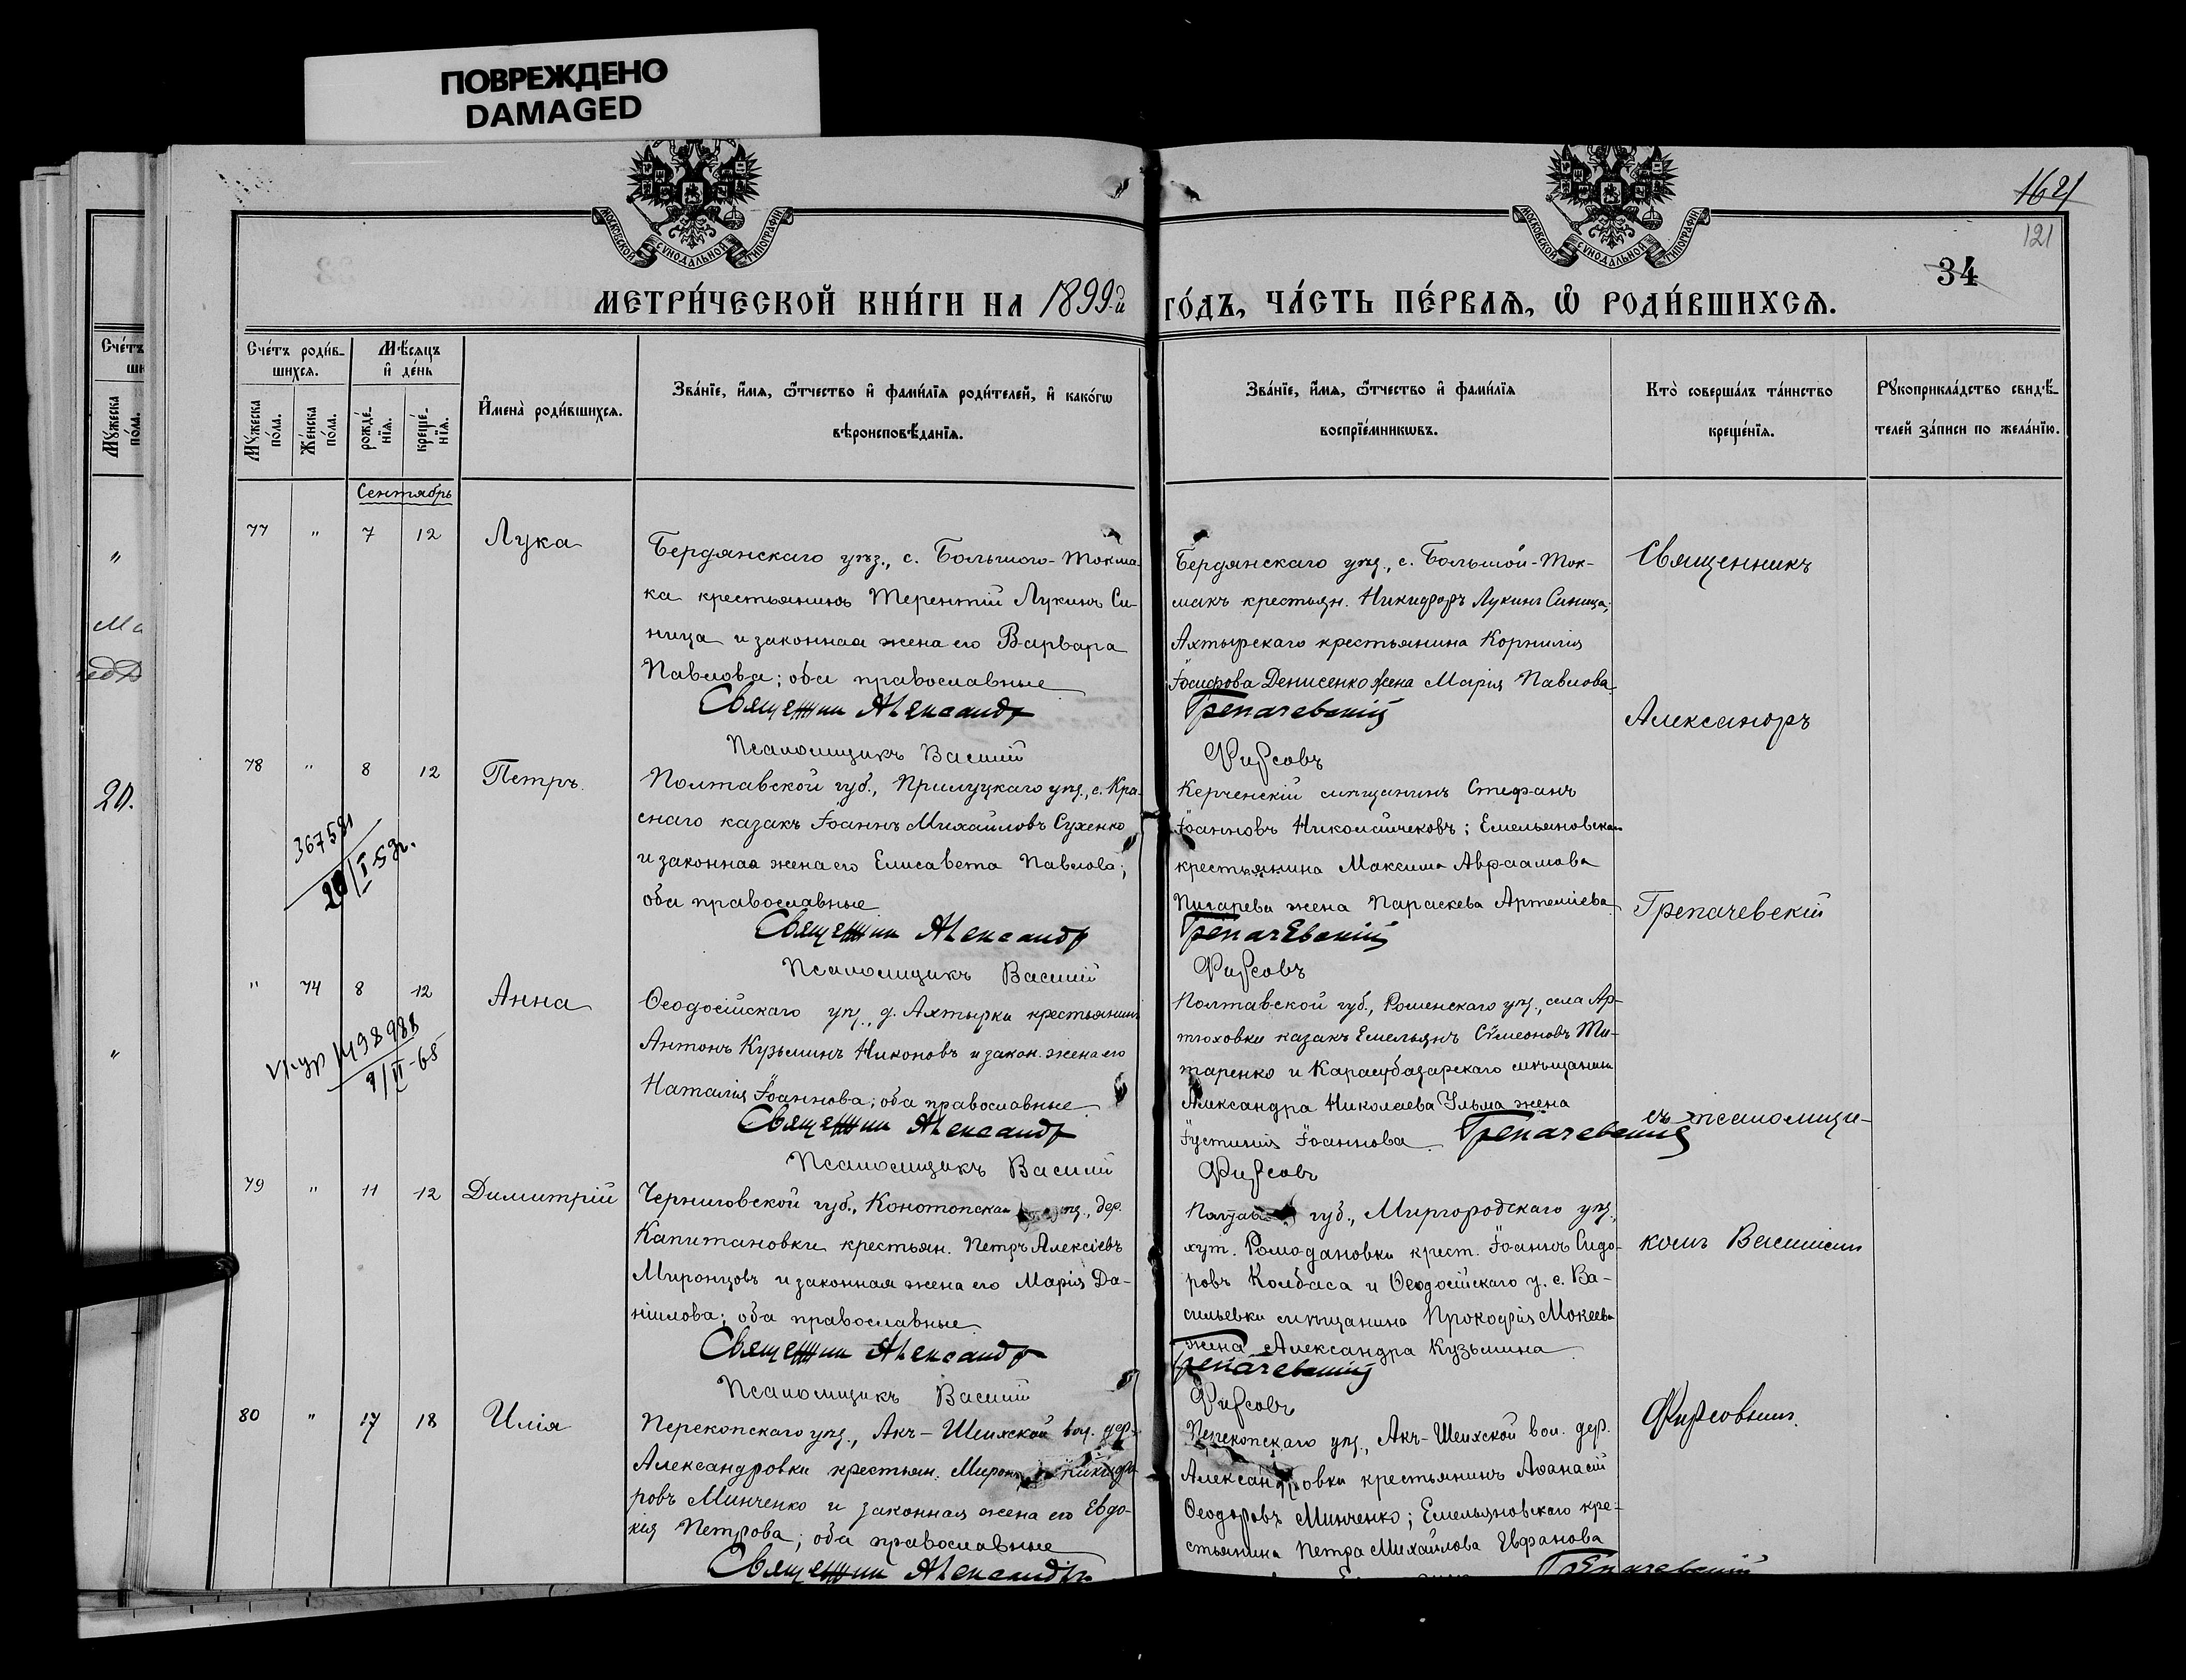 ПОВРЕЖДЕНО
DAMAGED
МОСКОВСКОЙ СѴНОДАЛЬНОЙ ТИПОГРАФІИ
МОСКОВСКОЙ СѴНОДАЛЬНОЙ ТИПОГРАФІИ
1621
121
34
МЕТРИ́ЧЕСКОЙ КНИ́ГИ НА 1899й ГО́ДЪ, ЧА́СТЬ ПЕ́РВАѦ, Ѡ҆ РОДИ́ВШИХСѦ.
Сче́тъ роди́в-
шихсѧ.
Мѣ́сѧцъ
и҆ де́нь
Мꙋ́жеска по́ла.
Же́нска по́ла.
рожде́-
нїѧ.
креще́-
нїѧ.
И҆мена̀ роди́вшихсѧ.
Зва́нїе, и҆́мѧ, ѻ҆́тчество и҆ фами́лїѧ роди́телей, и҆ како́гѡ
вѣроисповѣ́данїѧ.
Зва́нїе, и҆́мѧ, ѻ҆́тчество и҆ фами́лїѧ
воспрїе́мникѡвъ.
Кто̀ соверша́лъ та́инство
креще́нїѧ.
Рꙋкоприкла́дство свидѣ́-
телей за́писи по жела́нїю.
Сче́тъ
Мꙋ́жеска
по́ла.
20.
Сентябрь
77 " 7 12 Лука
Бердянскаго уѣз., с. Большого-Токма-
ка крестьянинъ Терентій Лукинъ Си-
ница и законная жена его Варвара
Павлова; оба православные
Священник Александр
Псаломщикъ Василій
Бердянскаго уѣз., с. Большой-Ток-
макъ крестьян. Никифоръ Лукинъ Синица;
Ахтырскаго крестьянина Корнилія
Іосифова Денисенко жена Марія Павлова
Грепачевскій
Фирсовъ
Священникъ
Александръ
78 " 8 12 Петръ
367591
20/I-53г.
Полтавской губ., Прилуцкаго уѣз., с. Кра-
снаго казакъ Іоаннъ Михайловъ Сухенко
и законная жена его Елисавета Павлова;
оба православные
Священник Александр
Псаломщикъ Василій
Керченскій мѣщанинъ Стефанъ
Іоанновъ Николайчековъ; Емельяновскаго
крестьянина Максима Авраамова
Пигарева жена Параскева Артеміева
Грепачевскій
Фирсовъ
Грепачевскій
" 74 8 12 Анна
Ѳеодосійскаго уѣз., д. Ахтырки крестьянинъ
Антонъ Кузьминъ Никоновъ и закон. жена его
Наталія Іоаннова; оба православные
Священник Александр
Псаломщикъ Василій
Полтавской губ., Роменскаго уѣз., села Ар-
тюховки казакъ Емельянъ Сѵмеоновъ Ти-
таренко и Карасубазарскаго мѣщанина
Александра Николаева Ульма жена
Іустинія Іоаннова. Грепачевскій
Фирсовъ
съ псаломщи-
79 " 11 12 Димитрій
Черниговской губ., Конотопска уѣз., дер.
Капитановки крестьян. Петръ Алексіевъ
Миронцовъ и законная жена его Марія Да-
ніилова; оба православные
Священник Александр
Псаломщикъ Василій
губ., Миргородскаго уѣз.,
хут. Ромодановки крест. Іоаннъ Сидо-
ровъ Колбаса и Ѳеодосійскаго у. с. Ва-
сильевки мѣщанина Прокофія Мокеева
жена Александра Кузьмина
Грепачевскій
Фирсовъ
комъ Василіемъ
80 " 17 18 Илія
Перекопскаго уѣз., Акъ-Шеихской вол. дер.
Александровки крестьян. Миронъ Никифо
ровъ Минченко и законная жена его Евдо-
кія Петрова; оба православные
Священник Александръ
Перекопскаго уѣз., Акъ-Шеихской вол. дер.
Александровки крестьянинъ Аѳанасій
Ѳеодоровъ Минченко; Емельяновскаго кре-
стьянина Петра Михайлова Евфанова
Грепачевскій
Фирсовымъ.